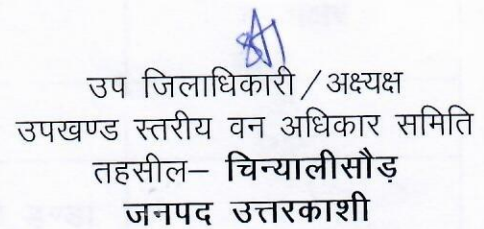 उप जिलाधिकारी / अक्ष्यक्ष
उपखण्ड स्तरीय वन अधिकार समिति
तहसील– चिन्यालीसौड़
जनपद उत्तरकाशी